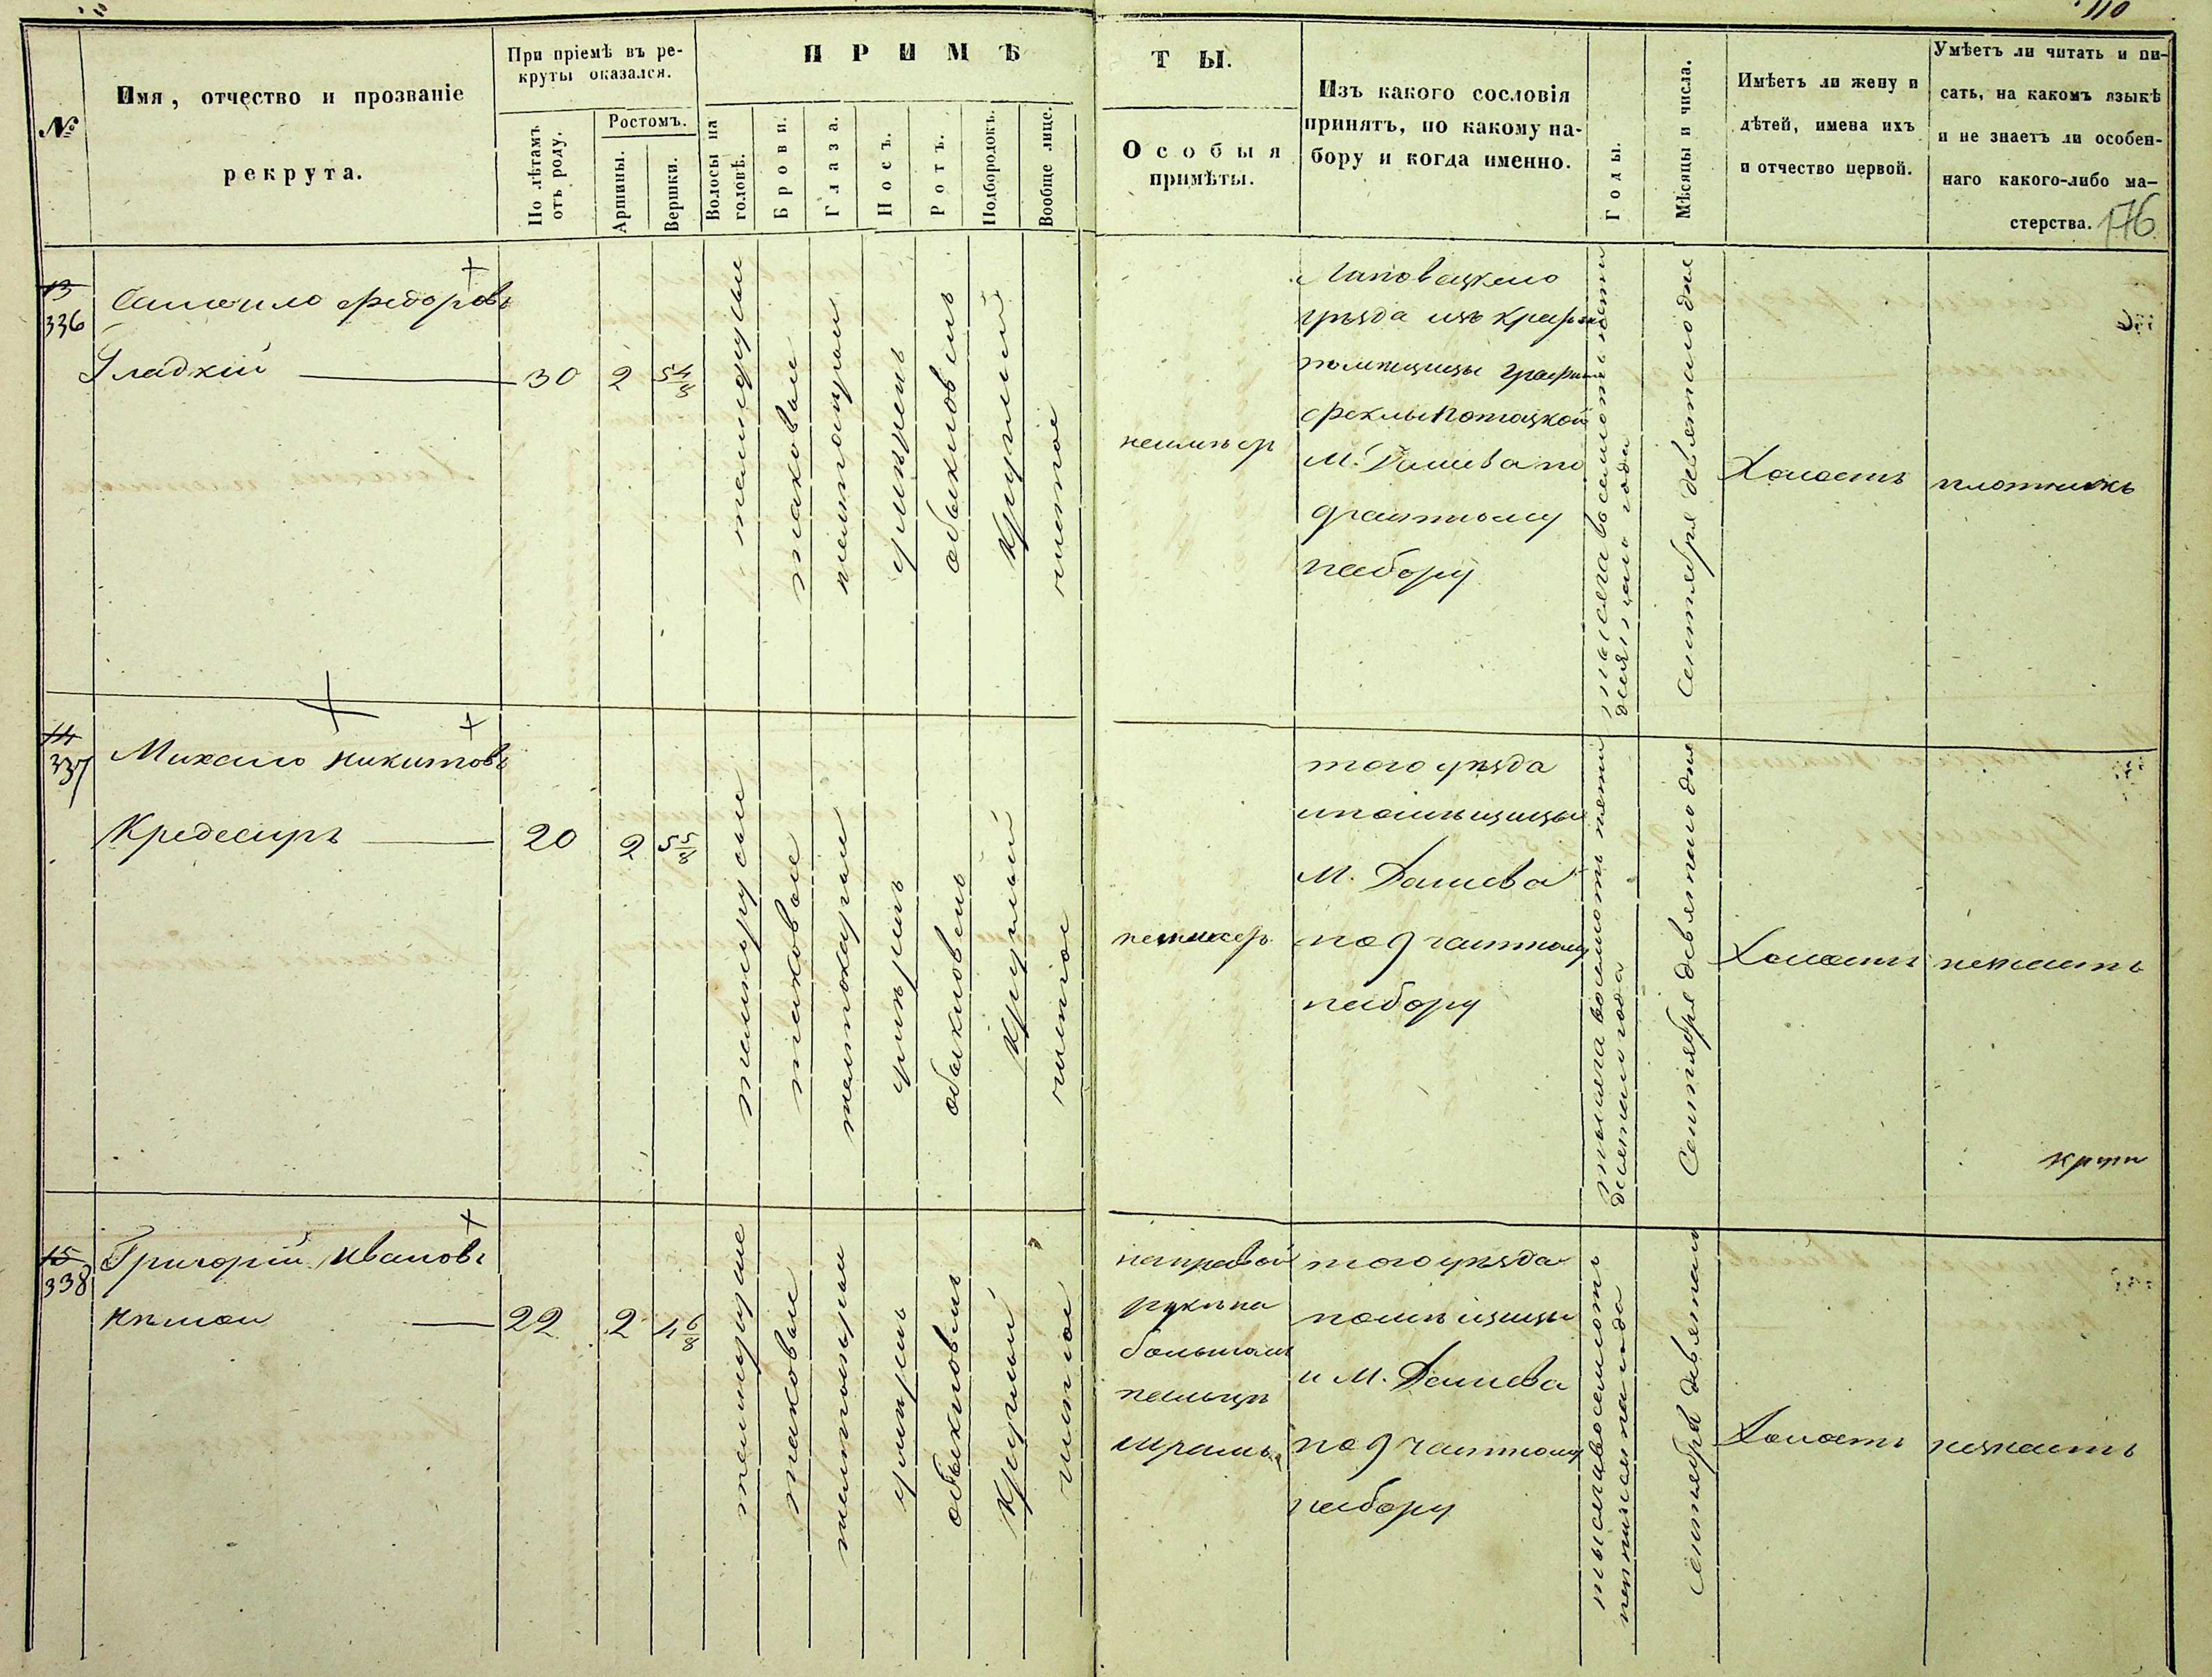 110
№
Имя, отчество и прозваніе
рекрута.
При пріемѣ въ ре-
круты оказался.
По лѣтамъ
отъ роду.
Ростомъ.
Аршины.
Вершки.
ПРИМѢ
Волосы на
головѣ.
Брови.
Глаза.
Носъ.
Ротъ.
Подбородокъ.
Вообще лице.
ТЫ.
Особыя
примѣты.
Изъ какого сословія
принятъ, по какому на-
бору и когда именно.
Годы.
Мѣсяцы и числа.
Имѣетъ ли жену и
дѣтей, имена ихъ
и отчество первой.
Умѣетъ ли читать и пи-
сать, на какомъ языкѣ
и не знаетъ ли особен-
наго какого-либо ма-
стерства.
176
13
336
Самоило Федоровъ
Гладкій
30
2
5 4/8
темнорусые
таковые
обыкновенъ
круглый
чистое
неимѣетъ
уѣзда изъ
помѣщицы Графини
Феклы Потоцкой
М. Дашева по
9 частному
набору
Сентября девятаго дня
Холостъ
плотникъ
14
337
Михайло Никитовъ
20
2
5 5/8
темнорусые
таковые
обыкновенъ
круглый
чистое
того уѣзда
и помѣщицы
М. Дашева
по 9 частному
набору
Сентября девятаго дня
Холостъ
незнаетъ
15
338
Григорій Ивановъ
22
2
4 6/8
темнорусые
таковые
обыкновенъ
круглый
чистое
на правой
руки на
большомъ
пальцѣ
шрамъ
того уѣзда
помѣщицы
и М. Дашева
по 9 частному
набору
Сентября девятаго
Холостъ
незнаетъ